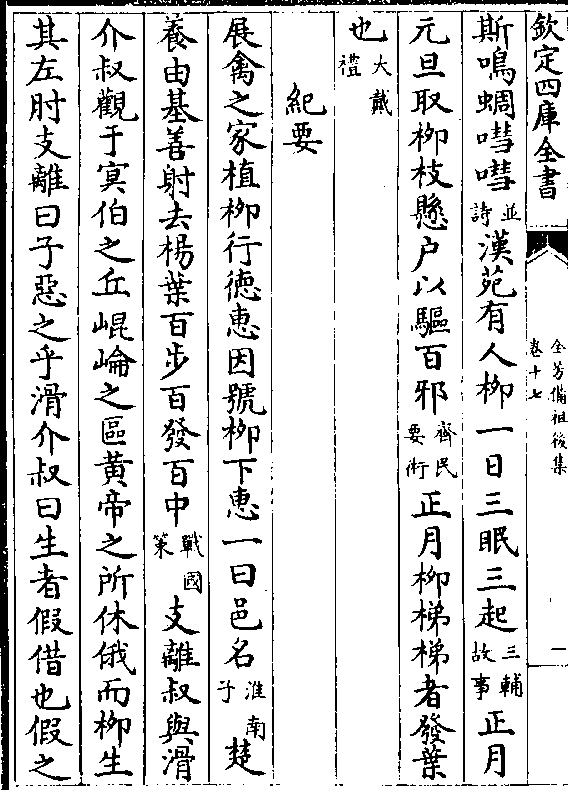 欽定四庫全書
全芳備祖後集
卷十七
一
斯鳴蜩嘒嘒並詩漢苑有人栁一日三眠三起三輔故事正月
元旦取栁枝懸户以驅百邪齊民要術正月栁梯梯者發葉
也大戴禮
紀要
展禽之家植栁行徳惠因號栁下惠一曰邑名淮南子楚
養由基善射去楊葉百步百發百中戰國策支離叔與滑
介叔觀于冥伯之丘崐崘之區黄帝之所休俄而栁生
其左肘支離曰子惡之乎滑介叔曰生者假借也假之